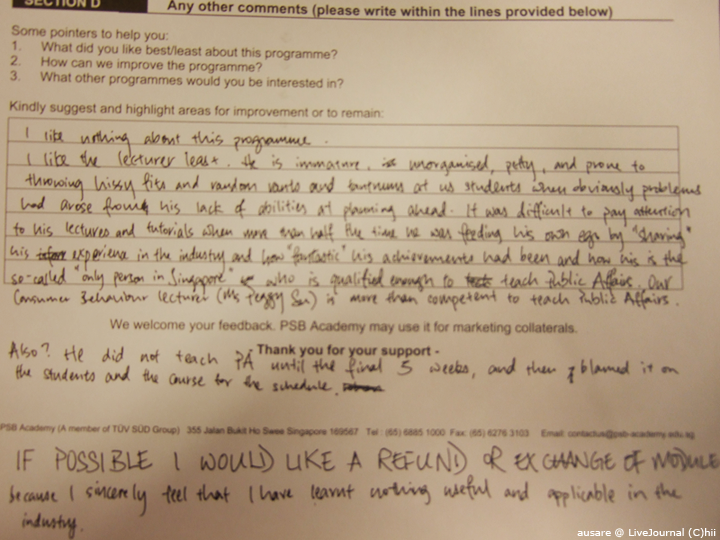 SECTION D
Any other comments (please write within the lines provided below)
Some pointers to help you:
1. What did you like best/least about this programme?
2. How can we improve the programme?
3. What other programmes would you be interested in?
Kindly suggest and highlight areas for improvement or to remain:
I like nothing about this programme.
I like the lecturer least. He is immature, unorganised, petty, and prone to
throwing hissy fits and random rants and tantrums at us students when obviously problems
had arose from his lack of abilities at planning ahead. It was difficult to pay attention
to his lectures and tutorials when more than half the time he was feeding his own ego by "sharing"
his experience in the industry and how "fantastic" his achievements had been and how his is the
so-called "only person in Singapore" who is qualified enough to teach Public Affairs. Our
Consumer Behaviour lecturer (Ms Peggy ) is more than competent to teach Public Affairs.
We welcome your feedback. PSB Academy may use it for marketing collaterals.
- Thank you for your support -
Also? He did not teach PA until the final 5 weeks, and then blamed it on
the students and the course for the schedule.
PSB Academy (A member of TÜV SÜD Group) 355 Jalan Bukit Ho Swee Singapore 169567 Tel : (65) 6885 1000 Fax: (65) 6276 3103 Email: contactus@psb-academy.edu.sg
IF POSSIBLE I WOULD LIKE A REFUND OR EXCHANGE OF MODULE
because I sincerely feel that I have learnt nothing useful and applicable in the
industry.
ausare @ LiveJournal (C)hii